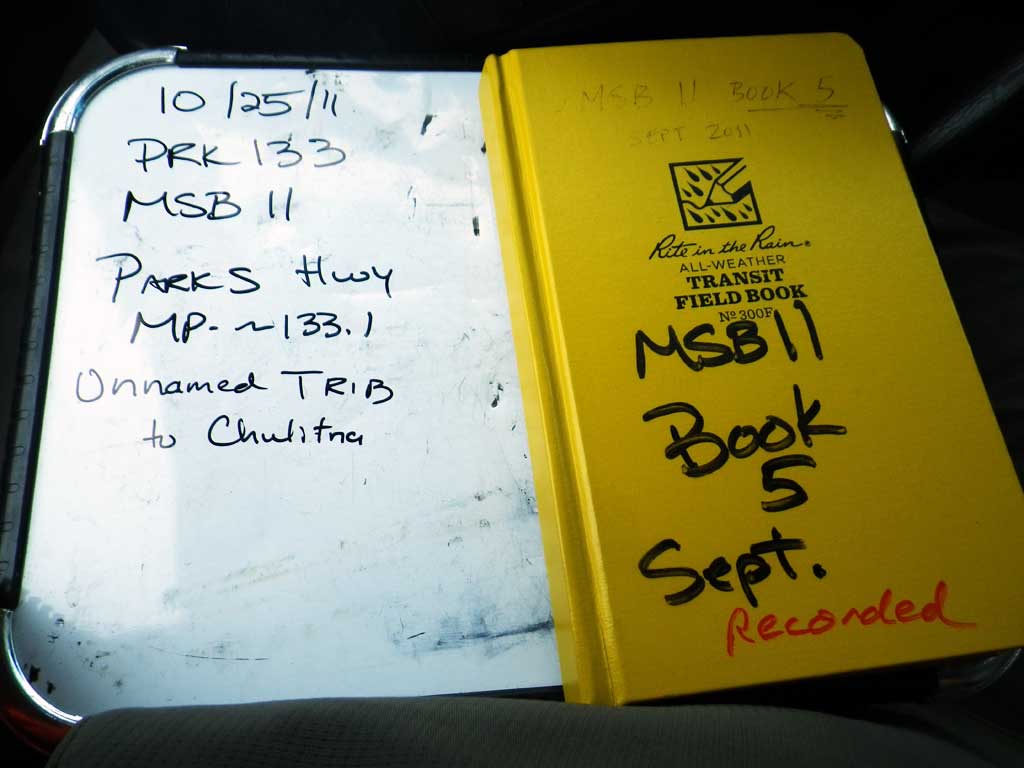 10/25/11
PRK 133
MSB 11
PARKS Hwy
MP- ~133.1
Unnamed TRIB
to Chulitna
MSB 11 BOOK 5
SEPT 2011
Rite in the Rain®
ALL-WEATHER
TRANSIT
FIELD BOOK
Nº 300F
MSB 11
Book
5
Sept.
Recorded